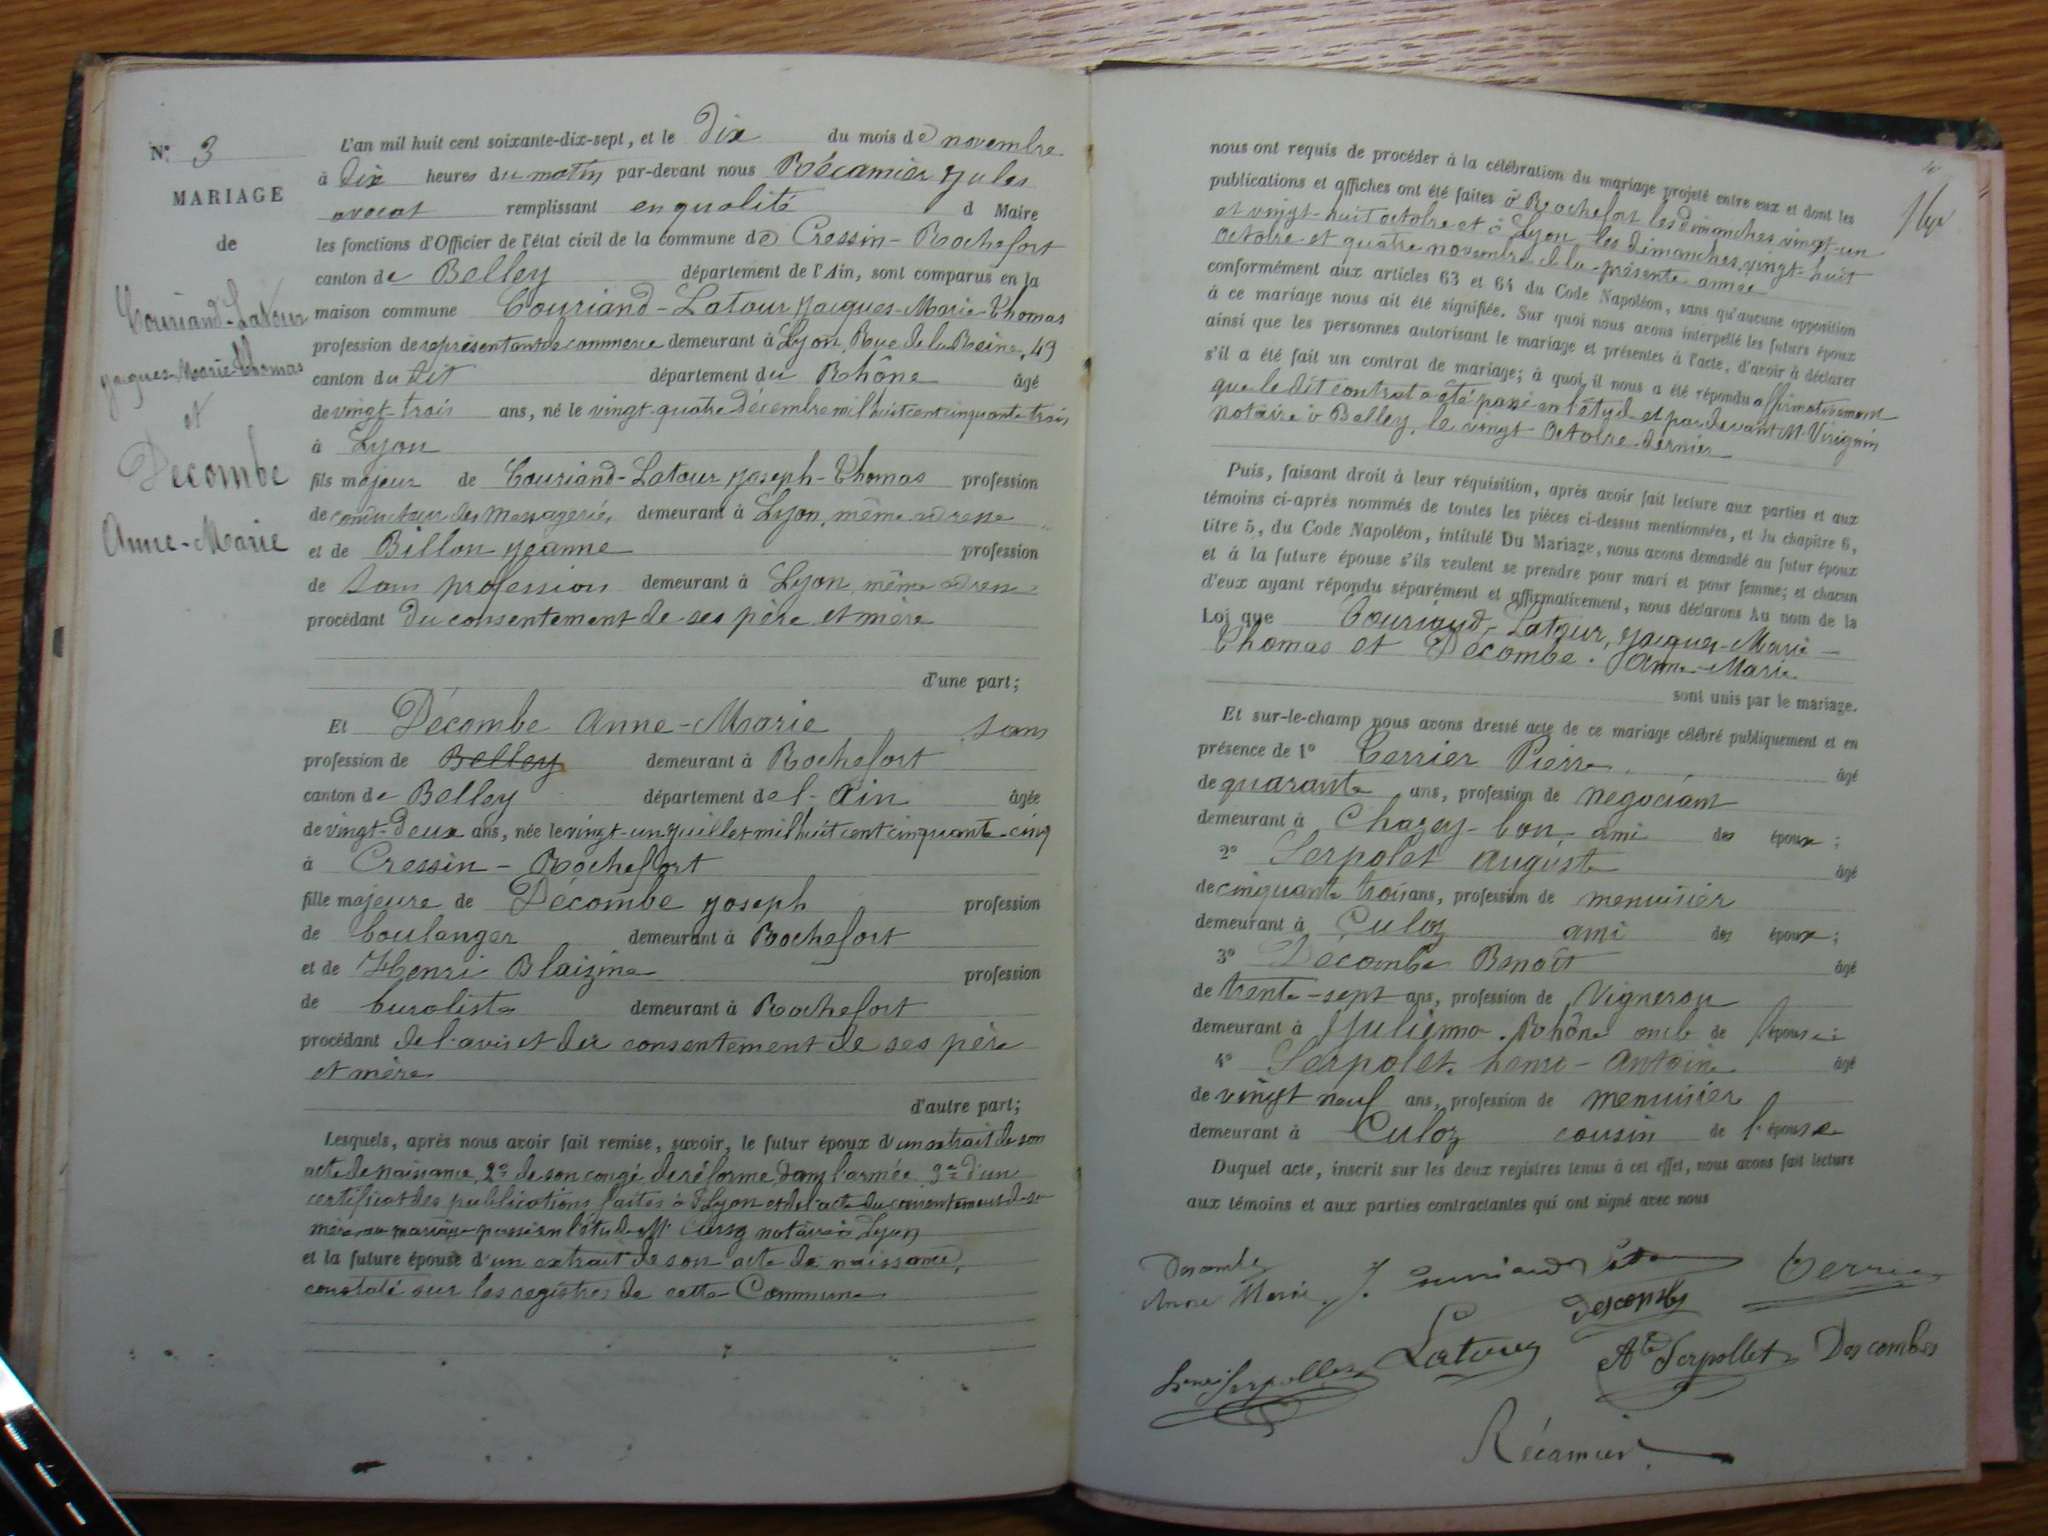 N° 3
MARIAGE
de
Couriand-Latour
Jacques-Marie-Thomas
et
Décombe
Anne-Marie
L'an mil huit cent soixante-dix-sept, et le dix du mois de novembre
à dix heures du matin par-devant nous Récamier Jules
avocat remplissant en qualité d Maire
les fonctions d'Officier de l'état civil de la commune de Cressin-Rochefort
canton de Belley département de l'Ain, sont comparus en la
maison commune Couriand-Latour Jacques-Marie-Thomas
profession de représentant de commerce demeurant à Lyon, Rue de la Reine, 49
canton du dit département du Rhône âgé
de vingt-trois ans, né le vingt-quatre Décembre mil huit cent cinquante trois
à Lyon
fils majeur de Couriand-Latour Joseph-Thomas profession
de conducteur des Messageries demeurant à Lyon, même adresse
et de Billon Jeanne profession
de sans profession demeurant à Lyon, même adresse
procédant du consentement de ses père et mère
d'une part;
Et Décombe Anne-Marie sans
profession de Belley demeurant à Rochefort
canton de Belley département de l'Ain âgée
de vingt-deux ans, née le vingt-un juillet mil huit cent cinquante-cinq
à Cressin-Rochefort
fille majeure de Décombe Joseph profession
de boulanger demeurant à Rochefort
et de Henri Blaizine profession
de buraliste demeurant à Rochefort
procédant de l'avis et du consentement de ses père
et mère
d'autre part;
Lesquels, après nous avoir fait remise, savoir, le futur époux d'un extrait de son
acte de naissance, 2° de son congé de réforme dans l'armée 3° d'un
certificat des publications faites à Lyon et de l'acte du consentement de sa
mère au mariage passé en l'étude M° notaire à Lyon
et la future épouse d'un extrait de son acte de naissance,
constaté sur les registres de cette Commune
nous ont requis de procéder à la célébration du mariage projeté entre eux et dont les
publications et affiches ont été faites à Rochefort les dimanches vingt-un
et vingt-huit octobre et à Lyon les dimanches vingt-huit
octobre et quatre novembre de la présente année
conformément aux articles 63 et 64 du Code Napoléon, sans qu'aucune opposition
à ce mariage nous ait été signifiée. Sur quoi nous avons interpellé les futurs époux
ainsi que les personnes autorisant le mariage et présentes à l'acte, d'avoir à déclarer
s'il a été fait un contrat de mariage; à quoi il nous a été répondu affirmativement
que le dit contrat a été passé en l'étude et par devant M. Virignin
notaire à Belley, le vingt Octobre dernier
Puis, faisant droit à leur réquisition, après avoir fait lecture aux parties et aux
témoins ci-après nommés de toutes les pièces ci-dessus mentionnées, et du chapitre 6,
titre 5, du Code Napoléon, intitulé Du Mariage, nous avons demandé au futur époux
et à la future épouse s'ils veulent se prendre pour mari et pour femme; et chacun
d'eux ayant répondu séparément et affirmativement, nous déclarons Au nom de la
Loi que Couriand-Latour, Jacques-Marie-
Thomas et Décombe Anne-Marie
sont unis par le mariage.
Et sur-le-champ nous avons dressé acte de ce mariage célébré publiquement et en
présence de 1° Perrier Pierre âgé
de quarante ans, profession de négociant
demeurant à Chazey-bon ami des époux;
2° Serpolet Auguste âgé
de cinquante trois ans, profession de menuisier
demeurant à Culoz ami des époux;
3° Décombe Benoît âgé
de trente-sept ans, profession de Vigneron
demeurant à Rhône oncle de l'épouse;
4° Serpolet henri-Antoine âgé
de vingt neuf ans, profession de menuisier
demeurant à Culoz cousin de l'épouse
Duquel acte, inscrit sur les deux registres tenus à cet effet, nous avons fait lecture
aux témoins et aux parties contractantes qui ont signé avec nous
Decombe
Anne Marie
descombes
Latour
Henri Serpollet
Ate Serpollet
Descombes
Récamier